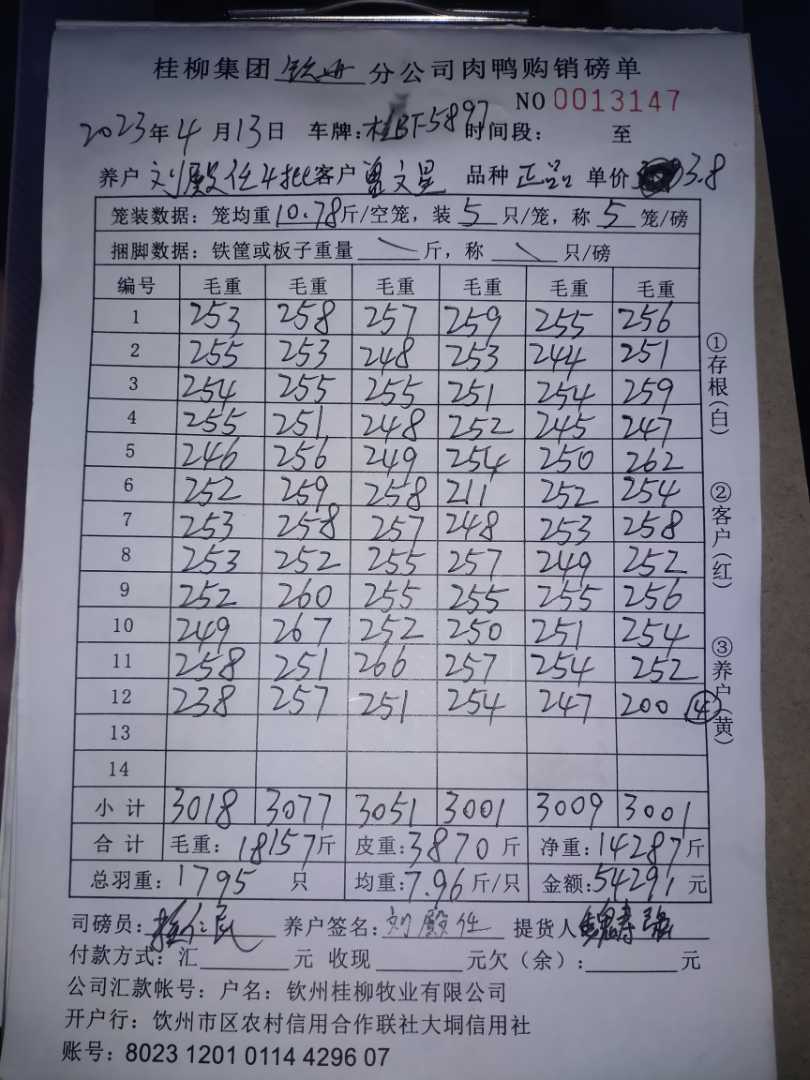 桂柳集团 钦州 分公司肉鸭购销磅单
NO 0013147
2023年4月13日 车牌:桂BT-5897 时间段: 至
养户 刘殿任4批 客户 曾文星 品种 正品 单价 3.8
笼装数据:笼均重10.78斤/空笼,装5只/笼,称5笼/磅
捆脚数据:铁筐或板子重量 \ 斤,称 \ 只/磅
编号 毛重 毛重 毛重 毛重 毛重 毛重
1 253 258 257 259 255 256
2 255 253 248 253 244 251
3 254 255 255 251 254 259
4 255 251 248 252 245 247
5 246 256 249 254 250 262
6 252 259 258 211 252 254
7 253 258 257 248 253 258
8 253 252 255 257 249 252
9 252 260 255 255 255 256
10 249 267 252 250 251 254
11 258 251 266 257 254 252
12 238 257 251 254 247 200 ④
13
14
小计 3018 3077 3051 3001 3009 3001
合计 毛重:18157斤 皮重:3870斤 净重:14287斤
总羽重:1795只 均重:7.96斤/只 金额:54291元
司磅员: 养户签名:刘殿任 提货人
付款方式:汇 元 收现 元欠(余): 元
公司汇款帐号:户名:钦州桂柳牧业有限公司
开户行:钦州市区农村信用合作联社大垌信用社
账号:8023 1201 0114 4296 07
①存根(白)
②客户(红)
③养户(黄)